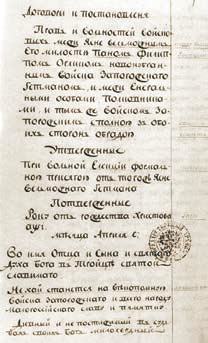 Договоры и постановленя
Правъ и волностей войско
выхъ межи Ясне велможнымъ
Его милости Паномъ Фили
помъ Орликомъ новоизбран
нымъ войска Запорозкого
Гетманомъ, и межи Енералными
особами Полковниками
и тымъ же войскомъ За
порозкимъ сполною зъ обо
ихъ сторонъ обрадою
Утверженные
При волной Елекціи формал
ною присягою отъ тогожъ Ясне
велможного Гетмана
Потверженные
Року отъ рождества Христова
аѱі
мѣсяца Апреля е҃
Во имя Отца и Сына и святаго
Духа Бога въ Тройцѣ святой
славимаго
Нехай станется на вѣкопомною
войска Запорозкого и всего народу
малоросійского славу и памятку
Дивный и непостижимый въ су
дбахъ своихъ Богъ милосердный